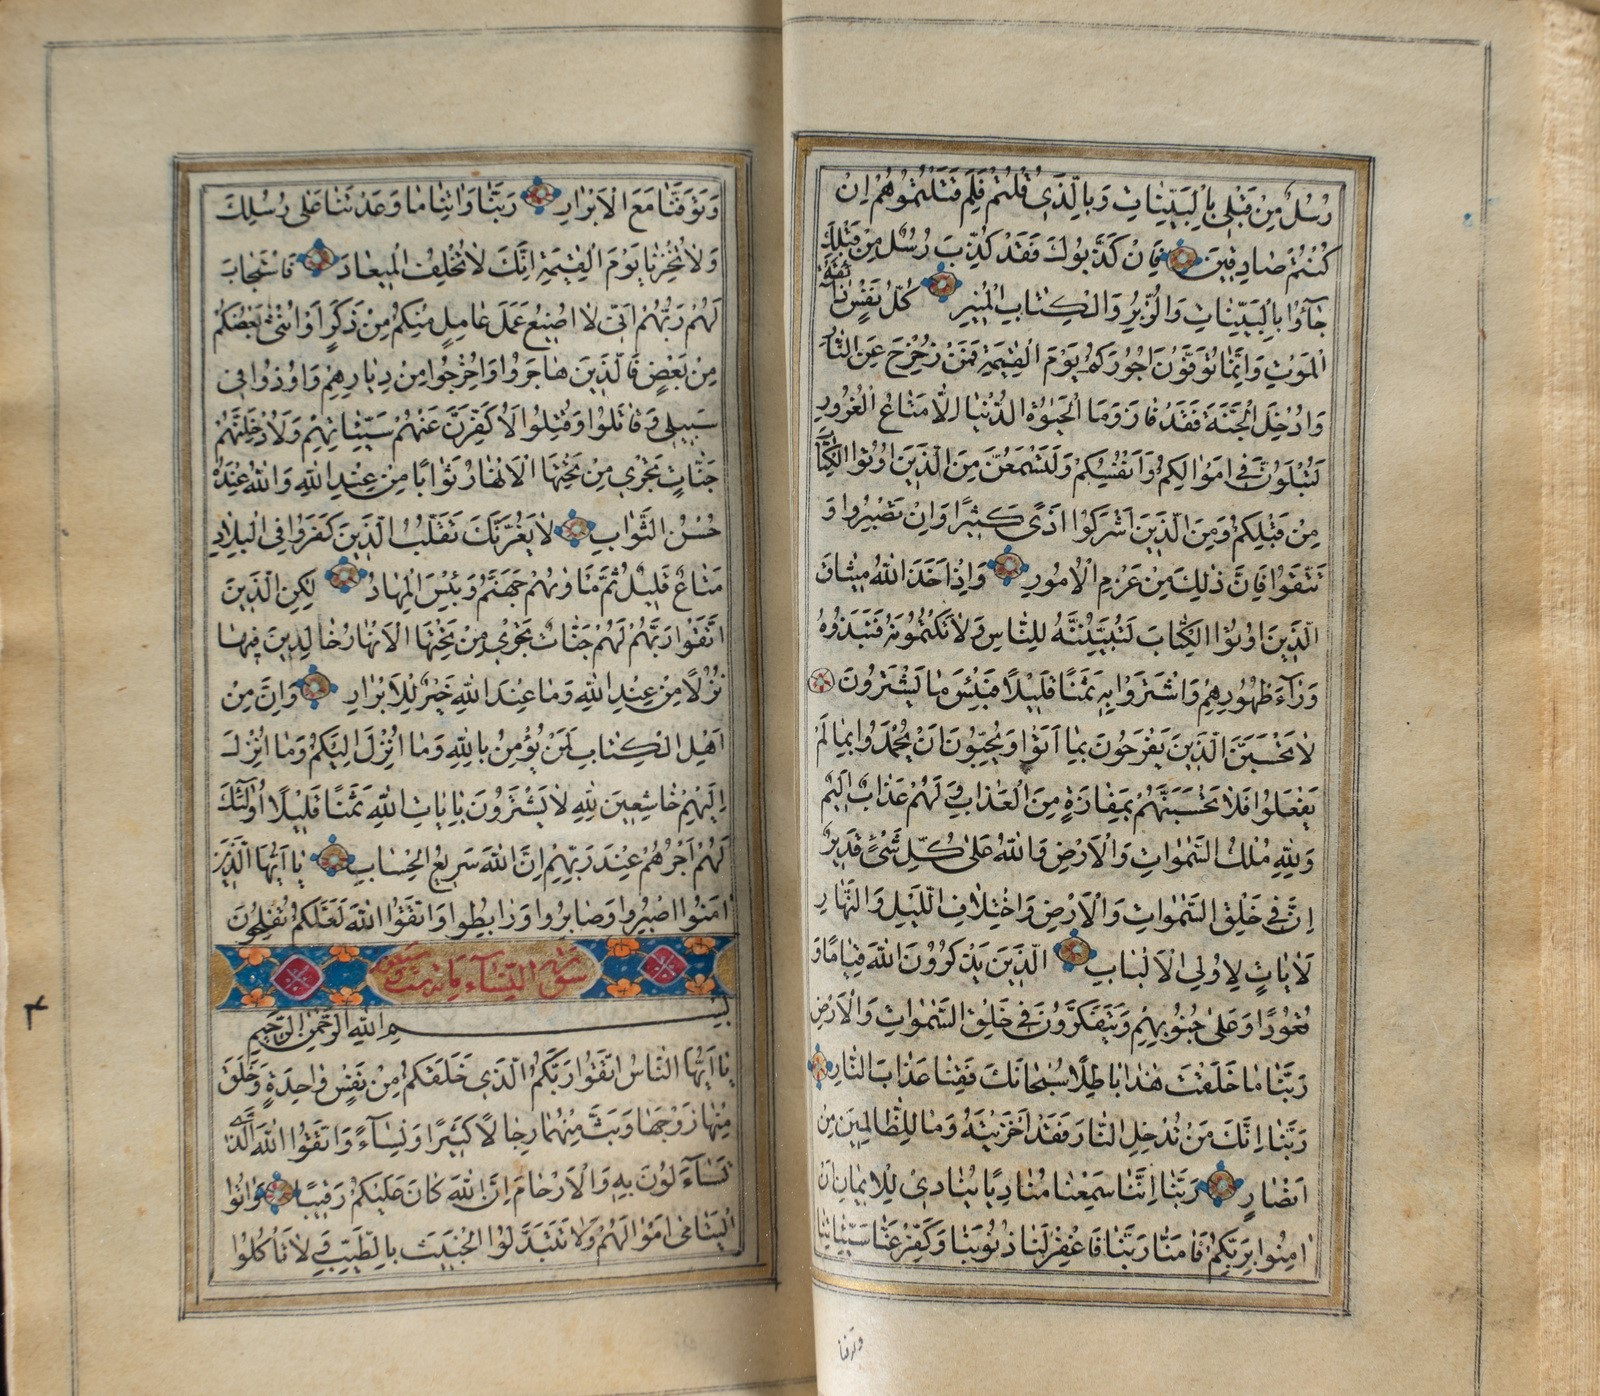 رُسُلٌ مِنْ قَبْلِى بِالْبَيِّنَاتِ وَبِالَّذِى قُلْتُمْ فَلِمَ قَتَلْتُمُوهُمْ اِنْ
كُنْتُمْ صَادِقِينَ فَاِنْ كَذَّبُوكَ فَقَدْ كُذِّبَ رُسُلٌ مِنْ قَبْلِكَ
جَآؤُا بِالْبَيِّنَاتِ وَالزُّبُرِ وَالْكِتَابِ الْمُنِيرِ كُلُّ نَفْسٍ ذَائِقَةُ
الْمَوْتِ وَاِنَّمَا تُوَفَّوْنَ اُجُورَكُمْ يَوْمَ الْقِيمَةِ فَمَنْ زُحْزِحَ عَنِ النَّارِ
وَاُدْخِلَ الْجَنَّةَ فَقَدْ فَازَ وَمَا الْحَيٰوةُ الدُّنْيَا اِلَّا مَتَاعُ الْغُرُورِ
لَتُبْلَوُنَّ فِى اَمْوَالِكُمْ وَاَنْفُسِكُمْ وَلَتَسْمَعُنَّ مِنَ الَّذِينَ اُوتُوا الْكِتَابَ
مِنْ قَبْلِكُمْ وَمِنَ الَّذِينَ اَشْرَكُوا اَذًى كَثِيرًا وَاِنْ تَصْبِرُوا وَ
تَتَّقُوا فَاِنَّ ذٰلِكَ مِنْ عَزْمِ الْاُمُورِ وَاِذْ اَخَذَ اللّٰهُ مِيثَاقَ
الَّذِينَ اُوتُوا الْكِتَابَ لَتُبَيِّنُنَّهُ لِلنَّاسِ وَلَا تَكْتُمُونَهُ فَنَبَذُوهُ
وَرَآءَ ظُهُورِهِمْ وَاشْتَرَوْا بِهِ ثَمَنًا قَلِيلًا فَبِئْسَ مَا يَشْتَرُونَ
لَا تَحْسَبَنَّ الَّذِينَ يَفْرَحُونَ بِمَا اَتَوْا وَيُحِبُّونَ اَنْ يُحْمَدُوا بِمَا لَمْ
يَفْعَلُوا فَلَا تَحْسَبَنَّهُمْ بِمَفَازَةٍ مِنَ الْعَذَابِ وَلَهُمْ عَذَابٌ اَلِيمٌ
وَلِلّٰهِ مُلْكُ السَّمٰوَاتِ وَالْاَرْضِ وَاللّٰهُ عَلٰى كُلِّ شَىْءٍ قَدِيرٌ
اِنَّ فِى خَلْقِ السَّمٰوَاتِ وَالْاَرْضِ وَاخْتِلَافِ الَّليْلِ وَالنَّهَارِ
لَاٰيَاتٍ لِاُولِى الْاَلْبَابِ الَّذِينَ يَذْكُرُونَ اللّٰهَ قِيَامًا وَ
قُعُودًا وَعَلٰى جُنُوبِهِمْ وَيَتَفَكَّرُونَ فِى خَلْقِ السَّمٰوَاتِ وَالْاَرْضِ
رَبَّنَا مَا خَلَقْتَ هٰذَا بَاطِلًا سُبْحَانَكَ فَقِنَا عَذَابَ النَّارِ
رَبَّنَا اِنَّكَ مَنْ تُدْخِلِ النَّارَ فَقَدْ اَخْزَيْتَهُ وَمَا لِلظَّالِمِينَ مِنْ
اَنْصَارٍ رَبَّنَا اِنَّنَا سَمِعْنَا مُنَادِيًا يُنَادِى لِلْاِيمَانِ اَنْ
اٰمِنُوا بِرَبِّكُمْ فَاٰمَنَّا رَبَّنَا فَاغْفِرْ لَنَا ذُنُوبَنَا وَكَفِّرْ عَنَّا سَيِّئَاتِنَا
وتوفنا
وَتَوَفَّنَا مَعَ الْاَبْرَارِ رَبَّنَا وَاٰتِنَا مَا وَعَدْتَنَا عَلٰى رُسُلِكَ
وَلَا تُخْزِنَا يَوْمَ الْقِيمَةِ اِنَّكَ لَا تُخْلِفُ الْمِيعَادَ فَاسْتَجَابَ
لَهُمْ رَبُّهُمْ اَنِّى لَا اُضِيعُ عَمَلَ عَامِلٍ مِنْكُمْ مِنْ ذَكَرٍ اَوْ اُنْثٰى بَعْضُكُمْ
مِنْ بَعْضٍ فَالَّذِينَ هَاجَرُوا وَاُخْرِجُوا مِنْ دِيَارِهِمْ وَاُوذُوا فِى
سَبِيلِى وَقَاتَلُوا وَقُتِلُوا لَاُكَفِّرَنَّ عَنْهُمْ سَيِّئَاتِهِمْ وَلَاُدْخِلَنَّهُمْ
جَنَّاتٍ تَجْرِى مِنْ تَحْتِهَا الْاَنْهَارُ ثَوَابًا مِنْ عِنْدِ اللّٰهِ وَاللّٰهُ عِنْدَهُ
حُسْنُ الثَّوَابِ لَا يَغُرَّنَّكَ تَقَلُّبُ الَّذِينَ كَفَرُوا فِى الْبِلَادِ
مَتَاعٌ قَلِيلٌ ثُمَّ مَاْوٰيهُمْ جَهَنَّمُ وَبِئْسَ الْمِهَادُ لٰكِنِ الَّذِينَ
اتَّقَوْا رَبَّهُمْ لَهُمْ جَنَّاتٌ تَجْرِى مِنْ تَحْتِهَا الْاَنْهَارُ خَالِدِينَ فِيهَا
نُزُلًا مِنْ عِنْدِ اللّٰهِ وَمَا عِنْدَ اللّٰهِ خَيْرٌ لِلْاَبْرَارِ وَاِنَّ مِنْ
اَهْلِ الْكِتَابِ لَمَنْ يُؤْمِنُ بِاللّٰهِ وَمَا اُنْزِلَ اِلَيْكُمْ وَمَا اُنْزِلَ
اِلَيْهِمْ خَاشِعِينَ لِلّٰهِ لَا يَشْتَرُونَ بِاٰيَاتِ اللّٰهِ ثَمَنًا قَلِيلًا اُولٰئِكَ
لَهُمْ اَجْرُهُمْ عِنْدَ رَبِّهِمْ اِنَّ اللّٰهَ سَرِيعُ الْحِسَابِ يَا اَيُّهَا الَّذِينَ
اٰمَنُوا اصْبِرُوا وَصَابِرُوا وَرَابِطُوا وَاتَّقُوا اللّٰهَ لَعَلَّكُمْ تُفْلِحُونَ
سورة النسآء مائة وست وسبعون
بِسْمِ اللّٰهِ الرَّحْمٰنِ الرَّحِيمِ
يَا اَيُّهَا النَّاسُ اتَّقُوا رَبَّكُمُ الَّذِى خَلَقَكُمْ مِنْ نَفْسٍ وَاحِدَةٍ وَخَلَقَ
مِنْهَا زَوْجَهَا وَبَثَّ مِنْهُمَا رِجَالًا كَثِيرًا وَنِسَآءً وَاتَّقُوا اللّٰهَ الَّذِى
تَسَآءَلُونَ بِهِ وَالْاَرْحَامَ اِنَّ اللّٰهَ كَانَ عَلَيْكُمْ رَقِيبًا وَاٰتُوا
الْيَتَامٰى اَمْوَالَهُمْ وَلَا تَتَبَدَّلُوا الْخَبِيثَ بِالطَّيِّبِ وَلَا تَاْكُلُوا